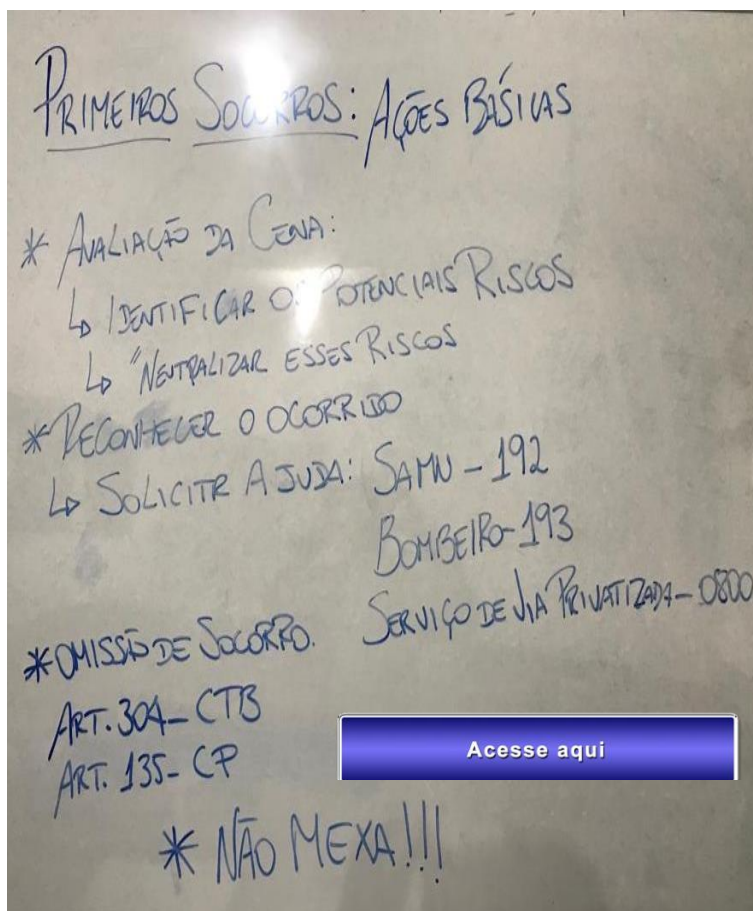 PRIMEIROS SOCORROS: AÇÕES BÁSICAS
* AVALIAÇÃO DA CENA:
↳ IDENTIFICAR OS POTENCIAIS RISCOS
↳ "NEUTRALIZAR ESSES RISCOS
* RECONHECER O OCORRIDO
↳ SOLICITR AJUDA: SAMU - 192
BOMBEIRO - 193
SERVIÇO DE VIA PRIVATIZADA - 0800
* OMISSÃO DE SOCORRO.
ART. 304 - CTB
ART. 135 - CP
Acesse aqui
* NÃO MEXA!!!